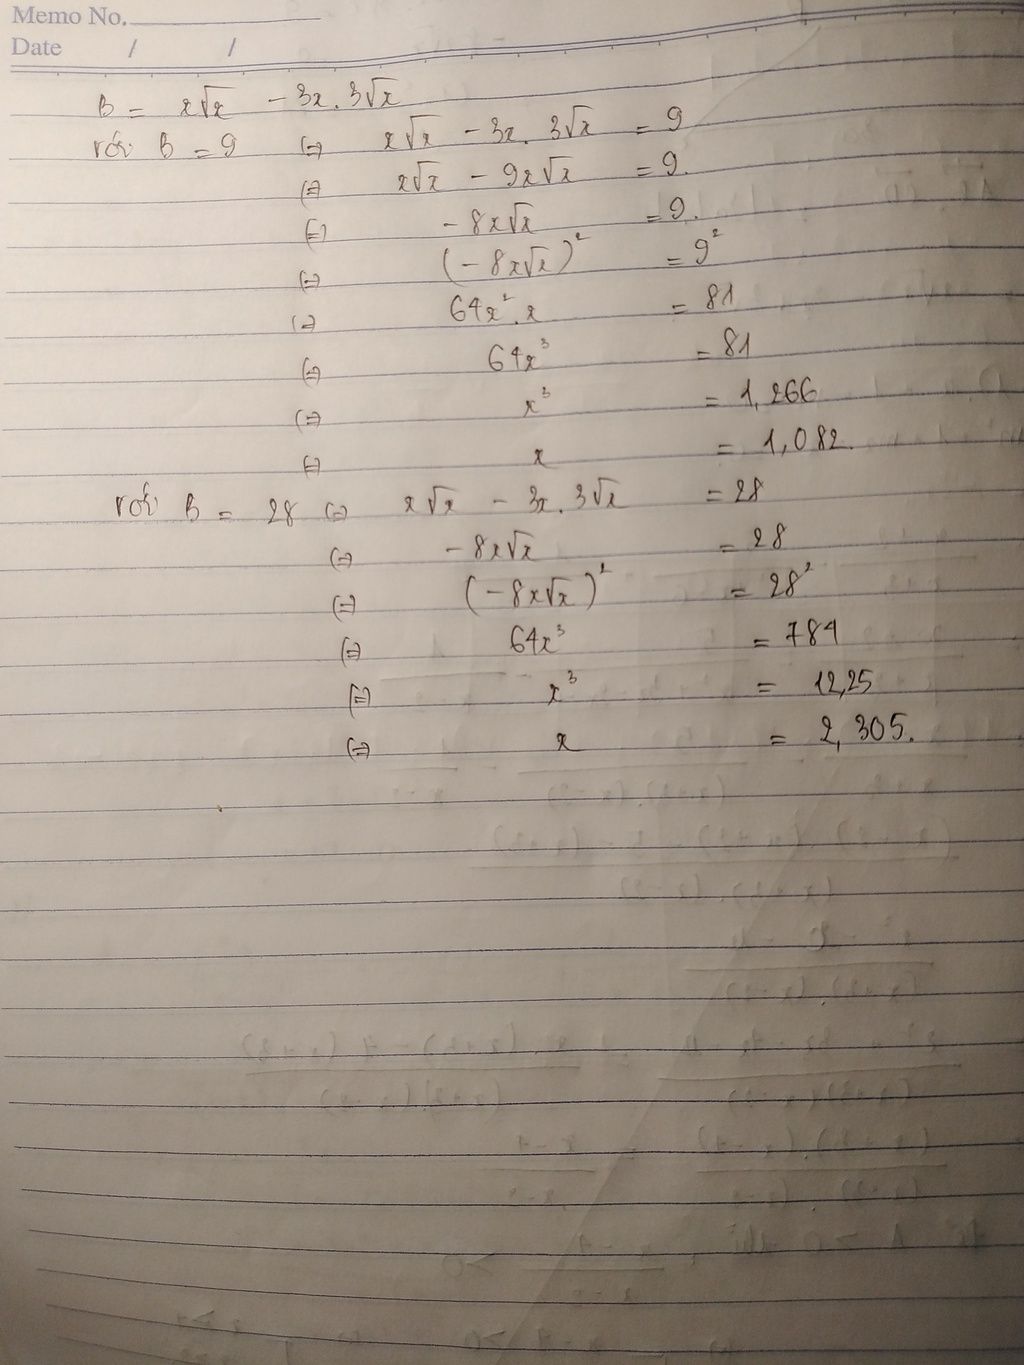 Memo No.
Date / /
B = x√x - 3x. 3√x
với B = 9 (=) x√x - 3x. 3√x = 9
(=) x√x - 9x√x = 9.
(=) - 8x√x = 9.
(=) (- 8x√x)² = 9²
(=) 64x². x = 81
(=) 64x³ = 81
(=) x³ = 1,266
(=) x = 1,082.
với B = 28 (=) x√x - 3x. 3√x = 28
(=) - 8x√x = 28
(=) (- 8x√x)² = 28²
(=) 64x³ = 784
(=) x³ = 12,25
(=) x = 2,305.